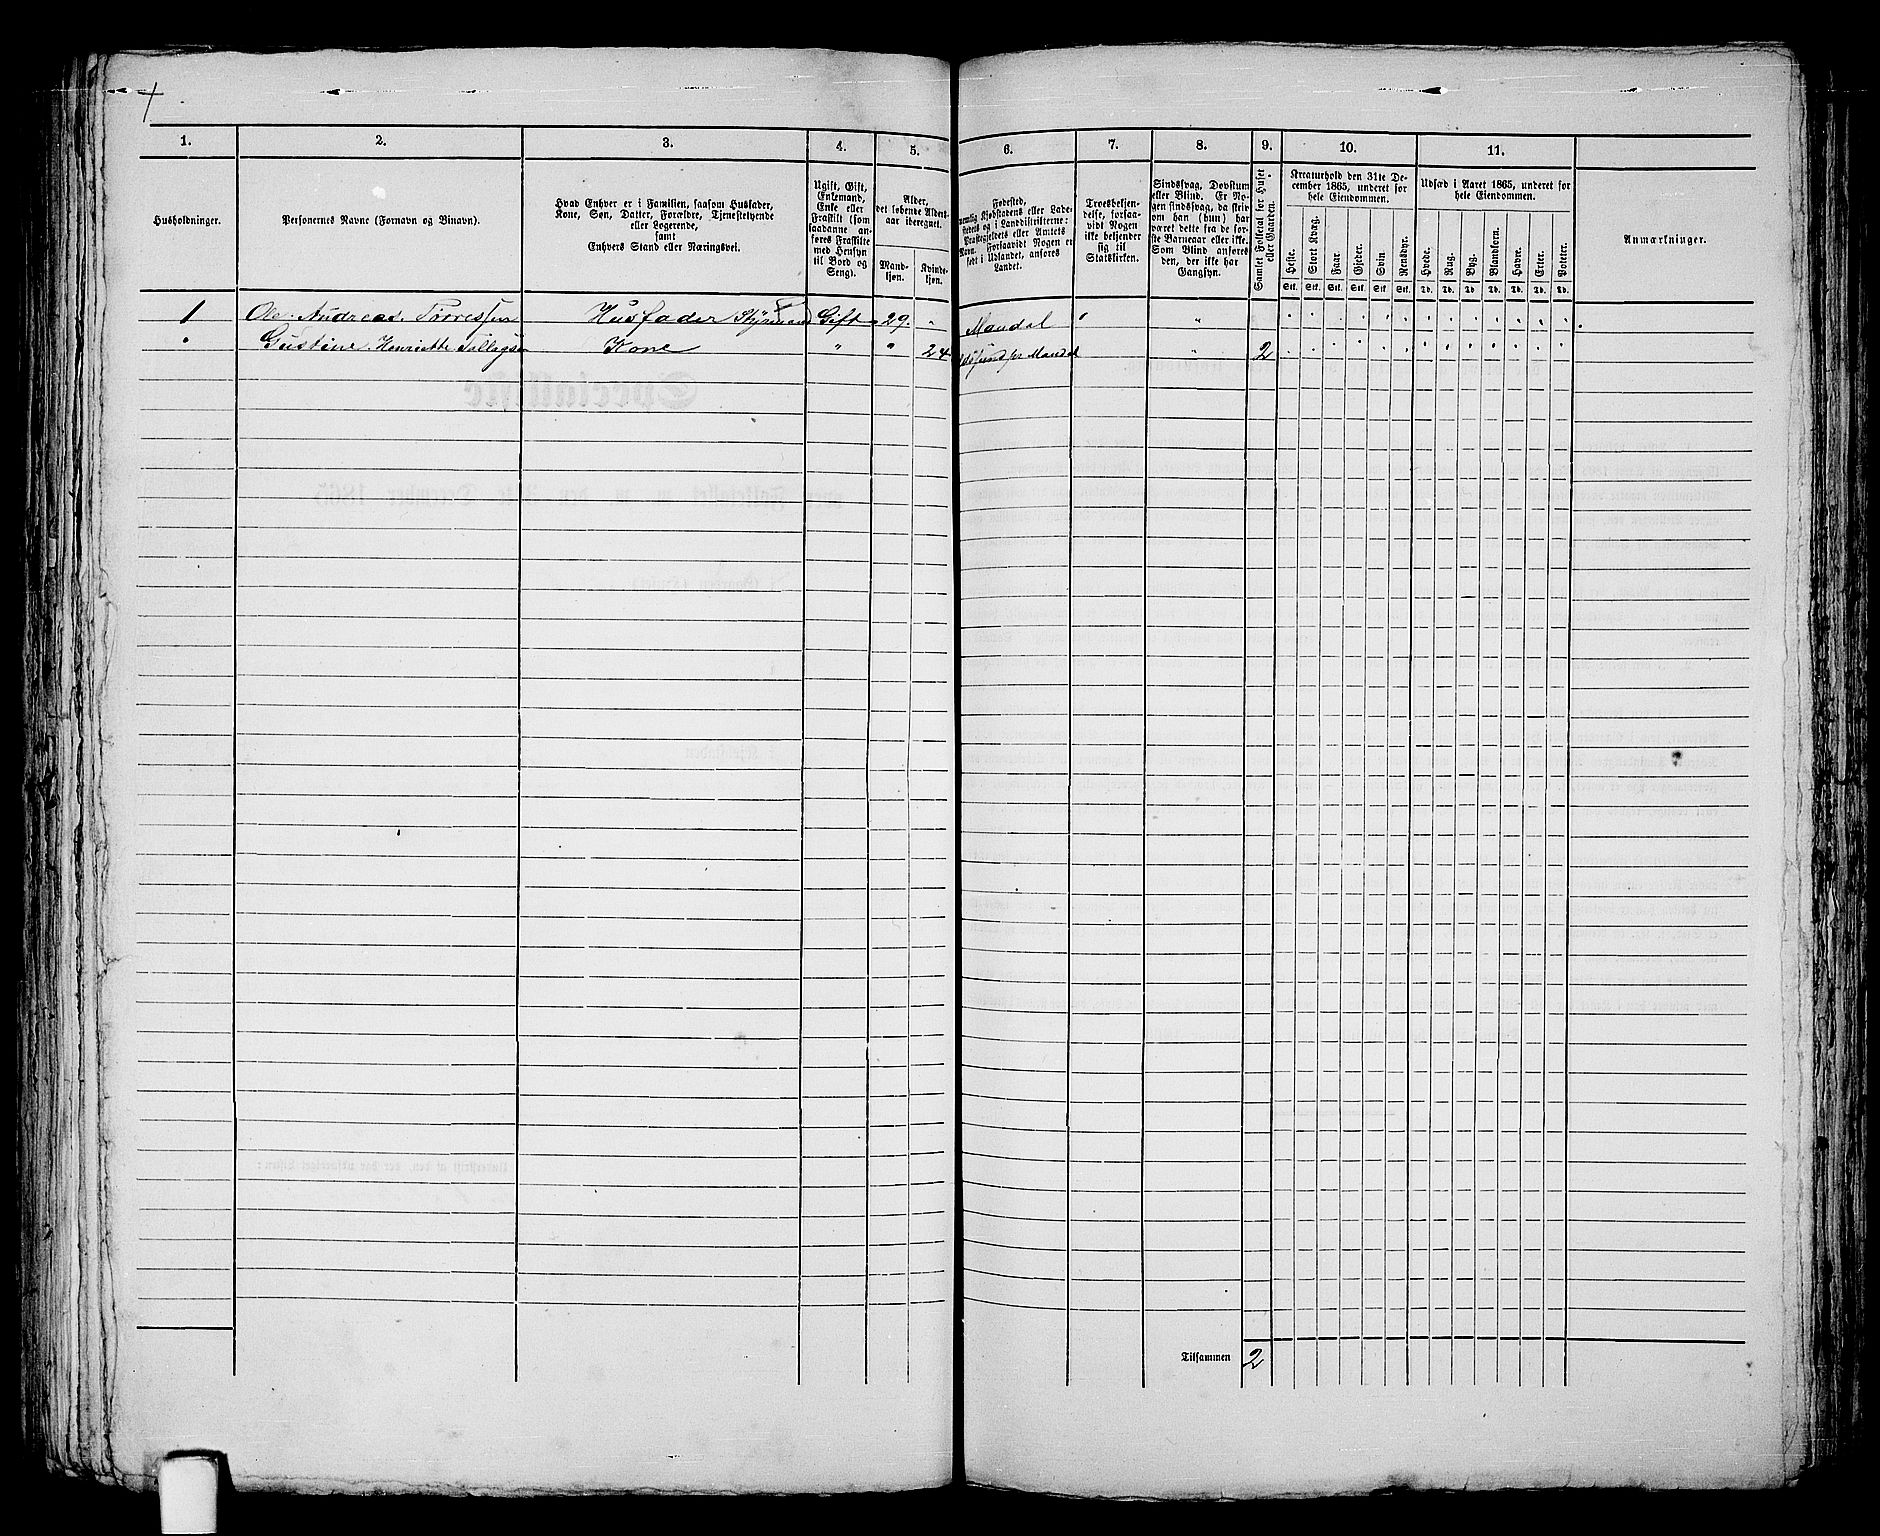 1. 2. 3. 4. 5. 6. 7. 8. 9. 10. 11.
Husholdninger.
Personernes Navne (Fornavn og Binavn).
Hvad Enhver er i Familien, saasom Husfader,
Kone, Søn, Datter, Forældre, Tjenestetyende
eller Logerende,
samt
Enhvers Stand eller Næringsvei.
Ugift, Gift,
Enkemand,
Enke eller
Fraskilt (som
saadanne an-
føres Fraskilte
med Hensyn
til Bord og
Seng).
Alder,
det løbende Alders-
aar iberegnet.
Mand-
kjøn.
Kvinde-
kjøn.
Fødested,
nemlig Kjøbstadens eller Lade-
stedets og i Landdistrikterne:
Præstegjeldets eller Amtets
Navn. Forsaavidt Nogen er
født i Udlandet, anføres
Landet.
Troesbekjen-
delse, forsaa-
vidt Nogen
ikke bekjender
sig til
Statskirken.
Sindssvag, Døvstum
eller Blind. Er No-
gen sindssvag, da skriv
om han (hun) har
været dette fra de før-
ste Barneaar eller ikke.
Som Blind anføres
den, der ikke har
Gangsyn.
Samlet Folketal for Huset
eller Gaarden.
Kreaturhold den 31te De-
cember 1865, underet for
hele Eiendommen.
Heste. Stort Kvæg. Faar. Gjeder. Svin Rensdyr.
Stk. Stk. Stk. Stk. Stk. Stk.
Udsæd i Aaret 1865, underet for
hele Eiendommen.
Hvede. Rug. Byg. Blandkorn. Havre. Erter. Poteter.
Td. Td. Td. Td. Td. Td. Td.
Anmærkninger.
1 Ole Andreas Tørressen Husfader Styrmand Gift 29. " Mandal "
" Gustine Henriette Kone " " 24 Mandal " 2
Tilsammen 2